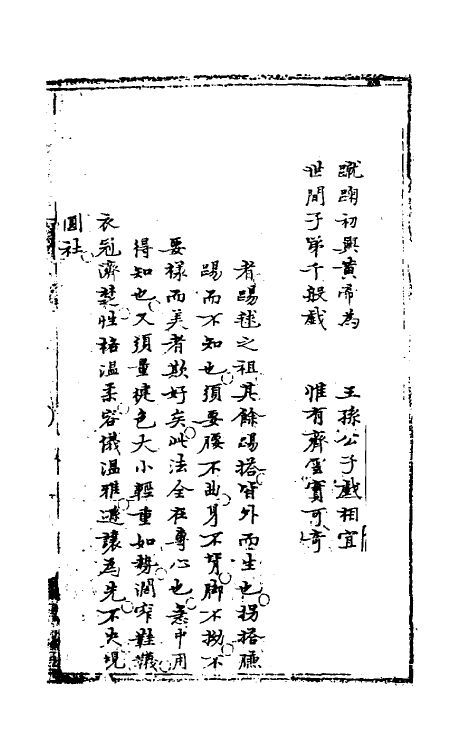 蹴踘初興黄帝為　王孫公子戲相宜
世間子弟千般戲　惟有齊雲實可奇
者踢毬之祖其餘踢搭皆外而生也拐搭膁
踢而不知也須要腰不曲身不背脚不拗不
要樣而美者欺好矣此法全在專心也意中用
得知也又須量健色大小輕重如勢濶窄鞋襪
衣冠濟楚性格温柔容儀温雅遜讓為先不失規
圓社